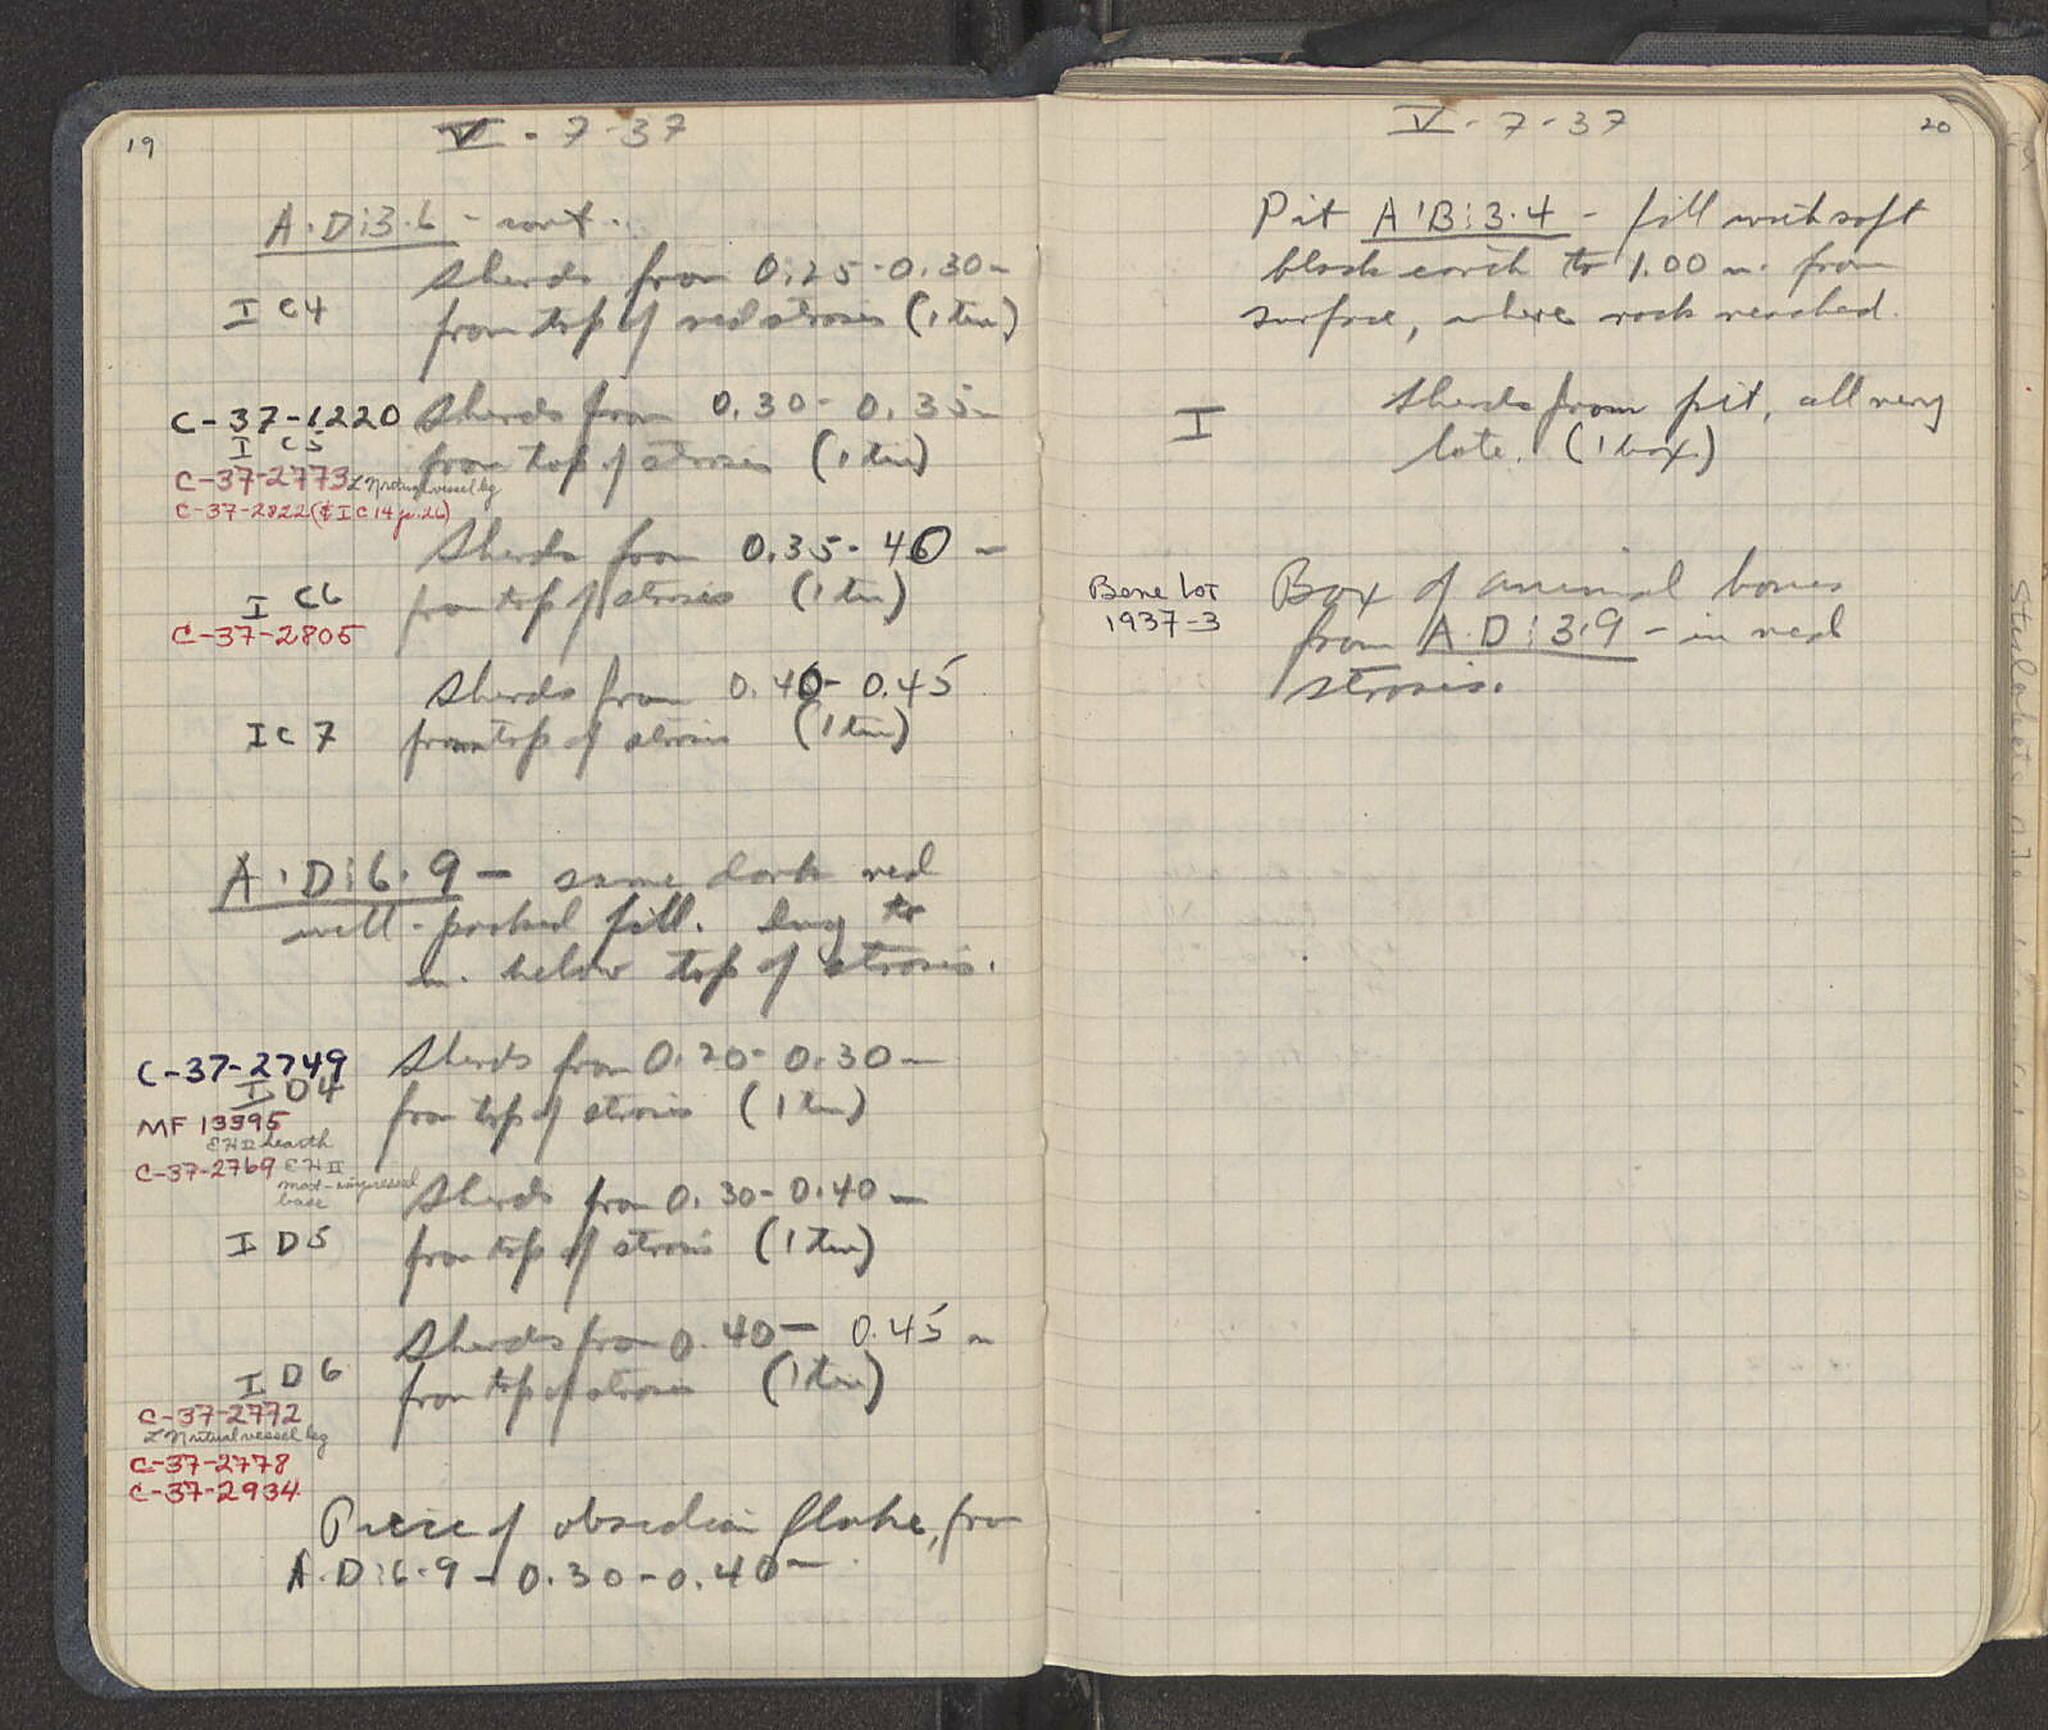 19
V - 7-37
A·D:3·6 - cont.
Sherds from 0.25-0.30 m
I C4
from top of red strosis (1 tin)
C-37-1220
Sherds from 0.30-0.35 m
I C5
from top of strosis (1 tin)
C-37-2773 LN ritual vessel leg
C-37-2822 (& I C 14 p. 26)
Sherds from 0.35-40 m
I C6
from top of strosis (1 tin)
C-37-2805
Sherds from 0.40-0.45
I C 7
from top of strosis (1 tin)
A·D:6·9 - same dark red
well-packed fill. Dug to
m. below top of strosis.
C-37-2749
Sherds from 0.20-0.30 m
I D4
from top of strosis (1 tin)
MF 13395
EH II hearth
C-37-2769 EH II
mat-impressed
base
Sherds from 0.30-0.40 m
I D5
from top of strosis (1 tin)
Sherds from 0.40-0.45 m
I D6
from top of strosis (1 tin)
C-37-2772
LN ritual vessel leg
C-37-2778
C-37-2934
Piece of obsidian flake, from
A·D:6·9 - 0.30-0.40 m
V - 7-37
20
Pit A'B:3·4 - fill with soft
black earth to 1.00 m. from
surface, where rock reached.
I
Sherds from pit, all very
late. (1 box)
Bone lot
1937-3
Box of animal bones
from A·D:3·9 - in red
strosis.